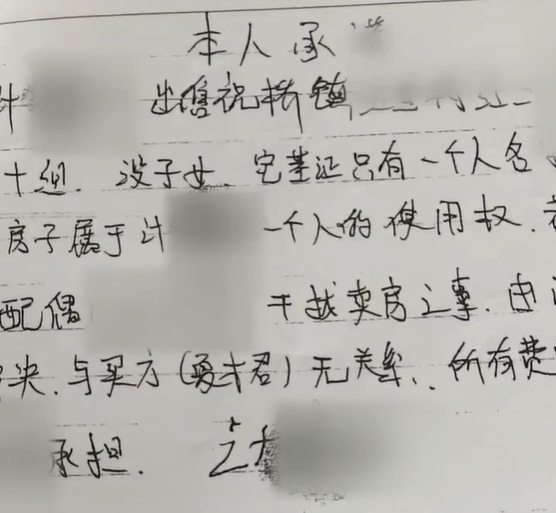 本人承
计 出售祝桥镇
十组. 没子女. 宅基证只有一个人名
房子属于计 一个人的使用权.
配偶 干越卖房之事. 由
决. 与买方(勇才君)无关系. 所有费
承担. 计